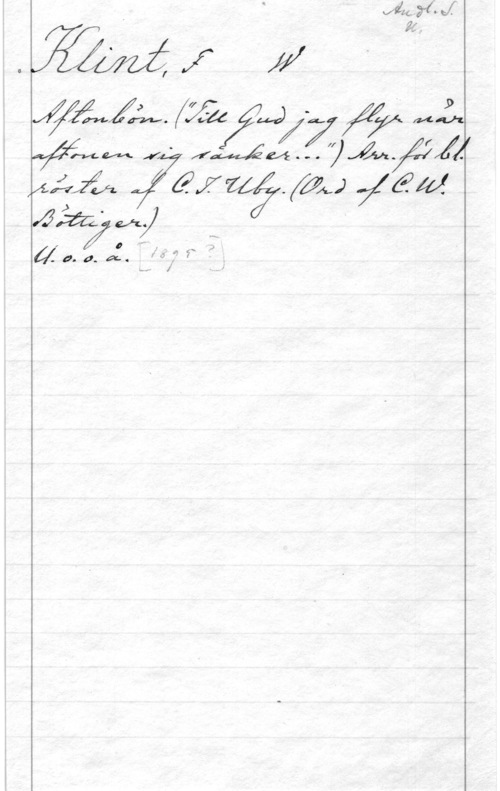 Andl. S.
U.
Klint, F W
Aftonbön. ("Till Gud jag flyr när
aftonen sig sänker...") Arr. för bl.
röster af C. J. Uby. (Ord af C. W.
Böttiger.)
U. o. o. å. [1895?]